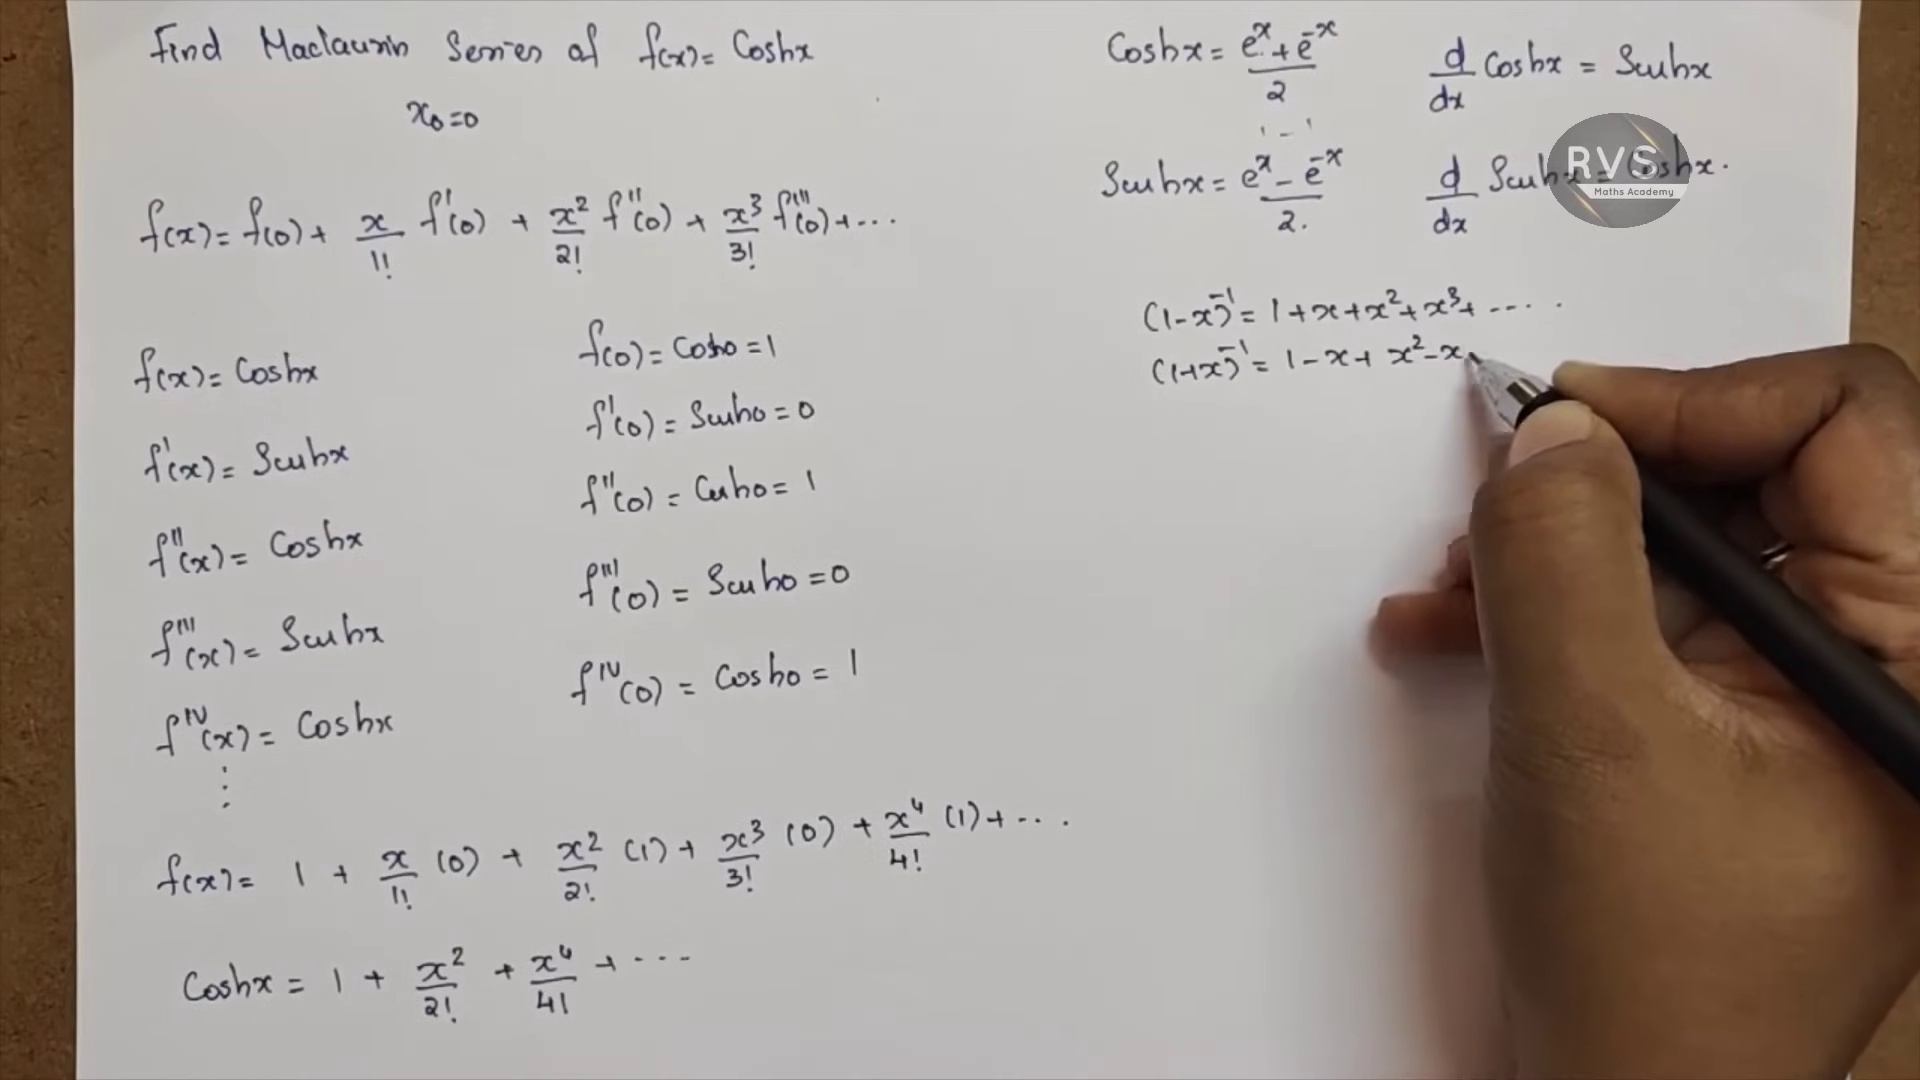 Find Maclaurin Series of f(x) = Coshx
x₀=0
f(x) = f(0) + x/1! f'(0) + x²/2! f''(0) + x³/3! f'''(0) + ...
f(x) = Coshx
f'(x) = Sinhx
f''(x) = Coshx
f'''(x) = Sinhx
f^IV(x) = Coshx
⋮
f(0) = Cosh0 = 1
f'(0) = Sinh0 = 0
f''(0) = Cosh0 = 1
f'''(0) = Sinh0 = 0
f^IV(0) = Cosh0 = 1
f(x) = 1 + x/1! (0) + x²/2! (1) + x³/3! (0) + x⁴/4! (1) + ...
Coshx = 1 + x²/2! + x⁴/4! + ...
Coshx = (e^x + e^-x)/2
d/dx Coshx = Sinhx
1 - 1
Sinhx = (e^x - e^-x)/2.
d/dx Sinhx = Coshx.
RVS
Maths Academy
(1-x)^-1 = 1 + x + x² + x³ + ....
(1+x)^-1 = 1 - x + x² - x